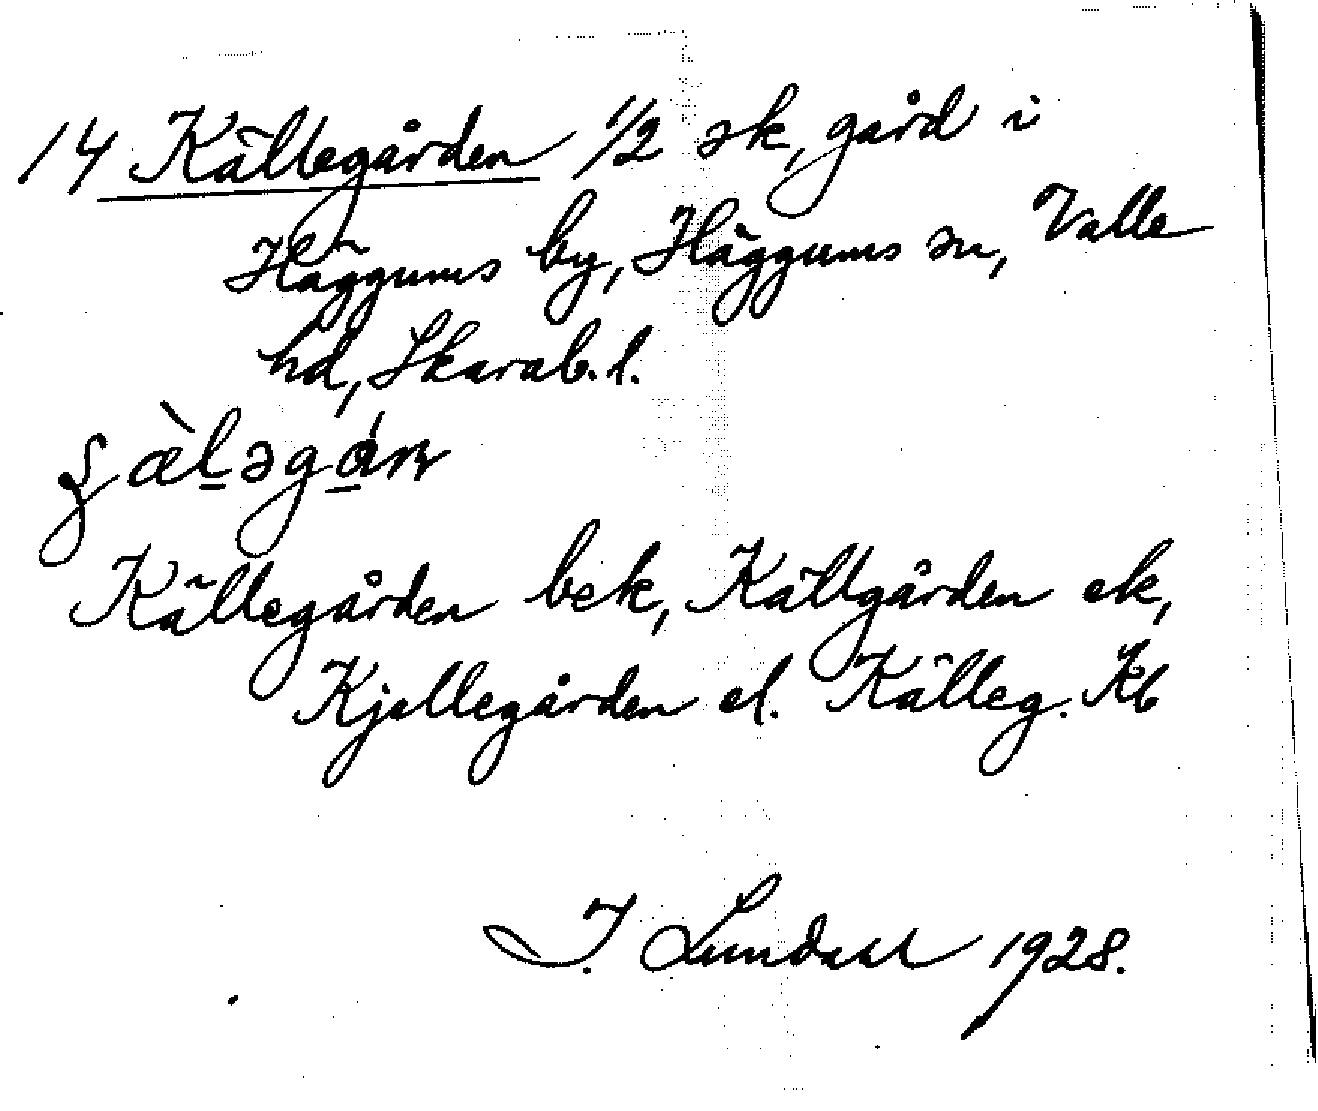 14 Källegården 1/2 sk, gård i
Häggums by, Häggums sn, Valle
hd, Skarab. l.
Källegården bek, Källgården ek,
Kjellegården el. Källeg. Kb
I. Lundahl 1928.